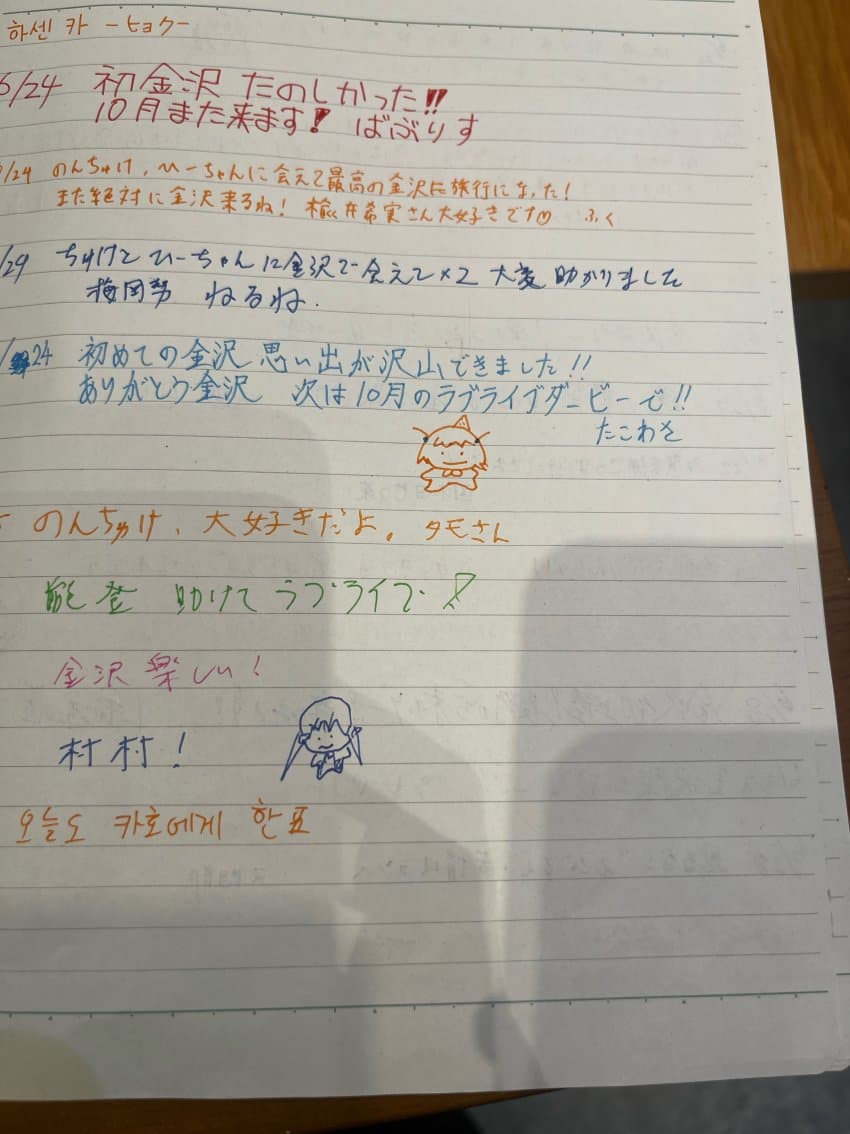 하센 카 -ヒョクー
6/24 初金沢 たのしかった!!
10月また来ます! ばぶりす
/24 のんちゅけ、ひーちゃんに会えて最高の金沢旅行になった!
また絶対に金沢来るね! 楡井希実さん大好きです♡ ふく
/29 ちゅけとひーちゃんに金沢で会えて×2 大変助かりました
梅岡努 ねるね.
/24 初めての金沢 思い出が沢山できました!!
ありがとう金沢 次は10月のラブライブダービーで!!
たこわさ
のんちゅけ、大好きだよ。タモさん
能登 助けて ラブライブ!
金沢 楽しい!
村村!
오늘도 카호에게 한표